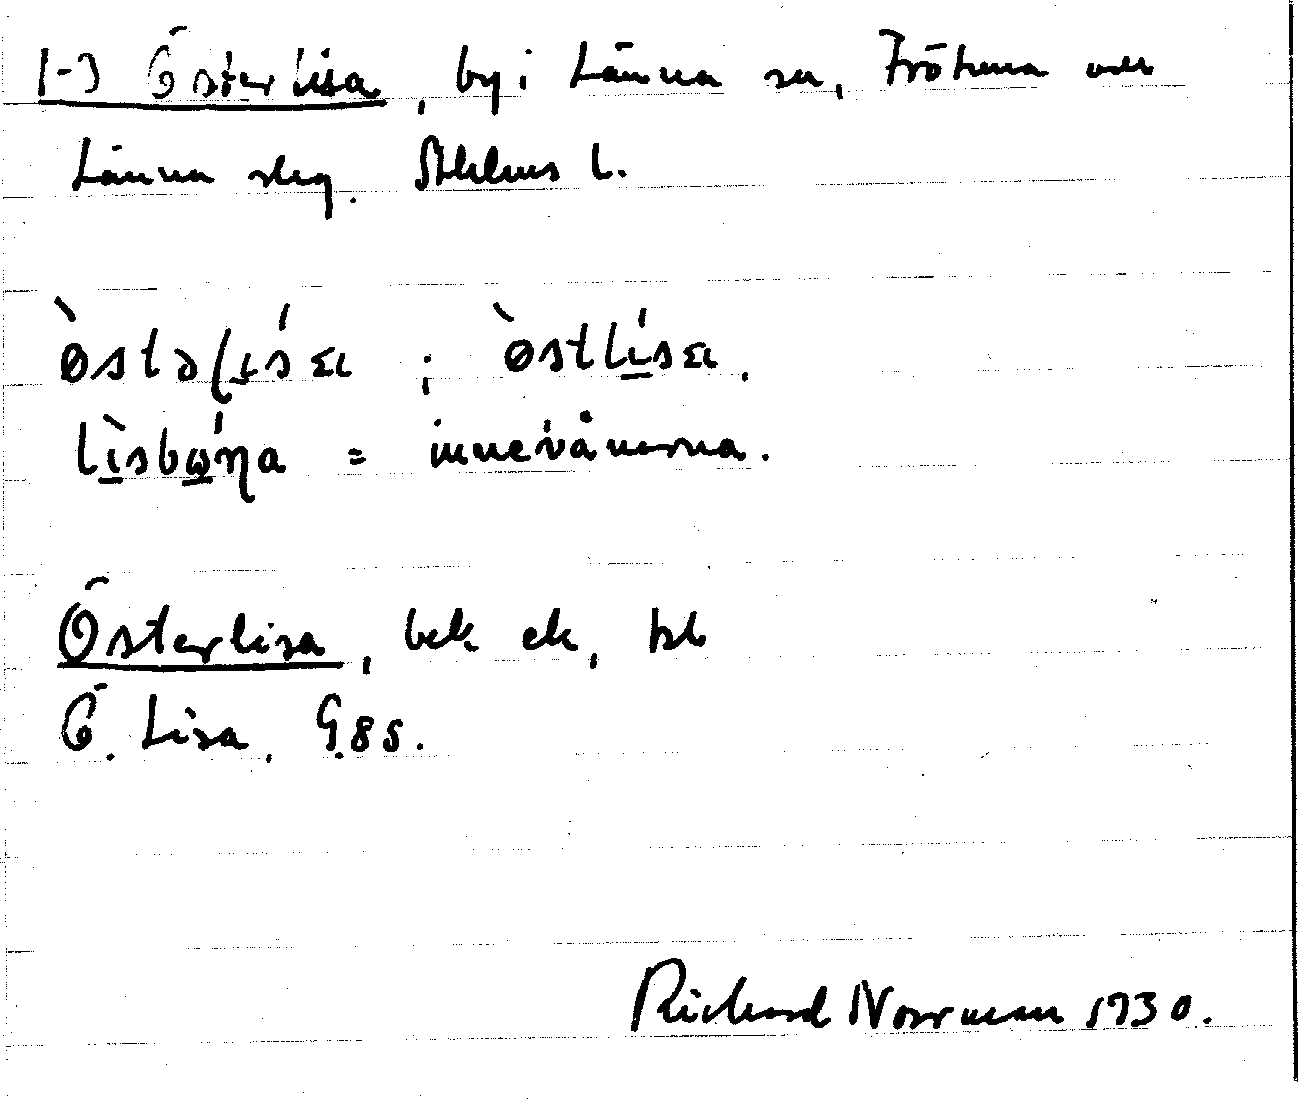 [-] Österlisa, by i Länna sn, Fröhuna och
Länna skg. Sthlms l.
ö̀stəlı̲́sa ; ö̀stlı̲́sa.
lı̲̀sbώ̲ŋa = innevånarna.
Österlisa, bek ek, kbl
Ö. Lisa. G.85.
Richard Norrman 1930.